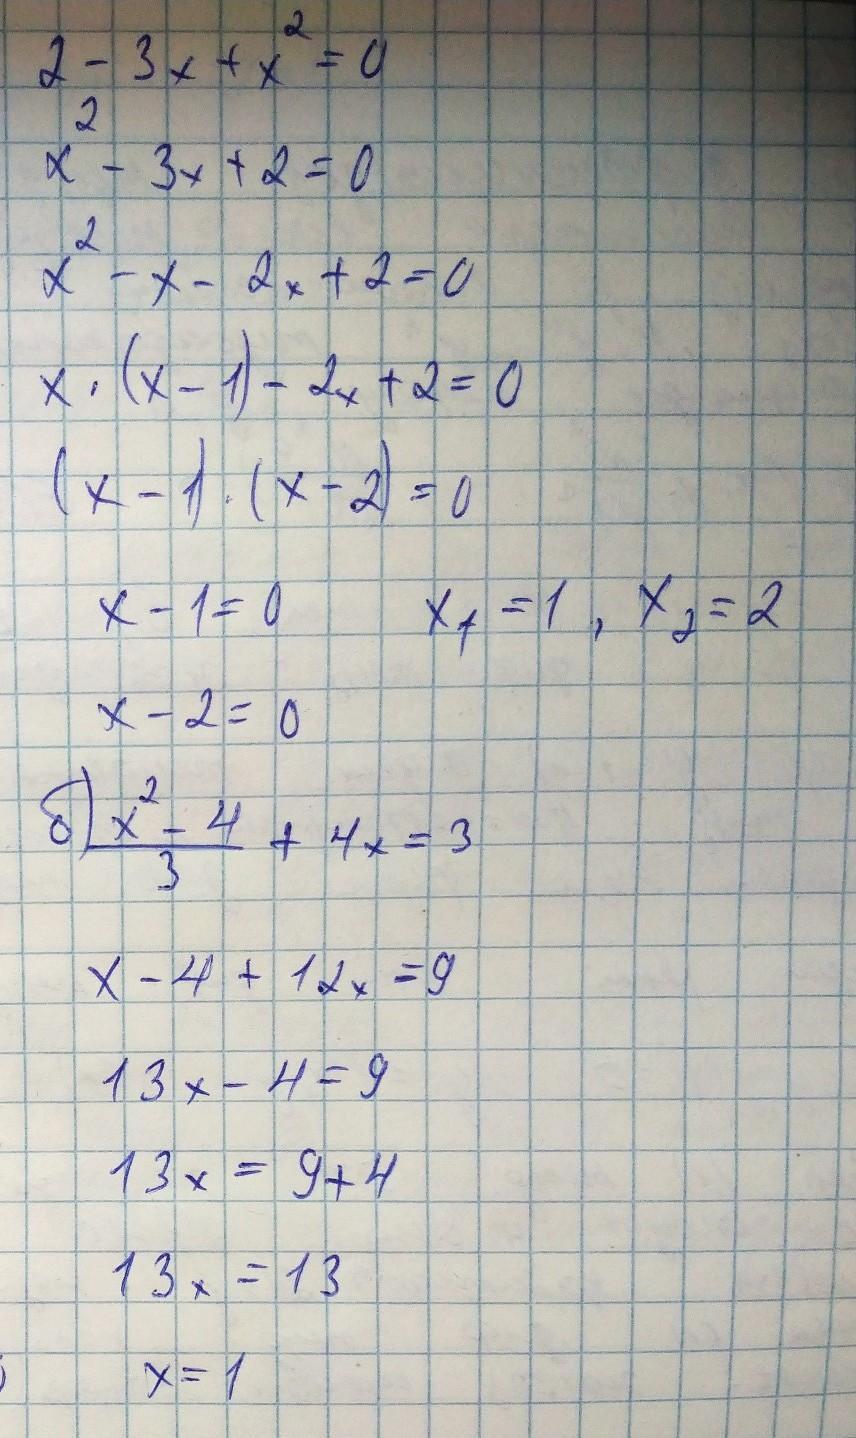 2 - 3x + x² = 0
x² - 3x + 2 = 0
x² - x - 2x + 2 = 0
x · (x - 1) - 2x + 2 = 0
(x - 1) · (x - 2) = 0
x - 1 = 0 x₁ = 1, x₂ = 2
x - 2 = 0
б) (x² - 4)/3 + 4x = 3
x - 4 + 12x = 9
13x - 4 = 9
13x = 9 + 4
13x = 13
x = 1